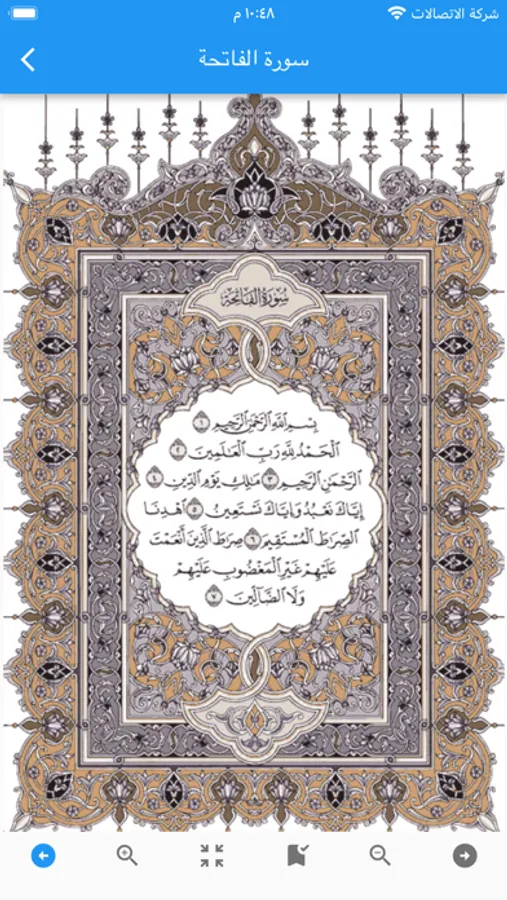 شركة الاتصالات ١٠:٤٨ م
سورة الفاتحة
سُورَةُ الفَاتِحَةِ
بِسْمِ اللَّهِ الرَّحْمَٰنِ الرَّحِيمِ ١
الْحَمْدُ لِلَّهِ رَبِّ الْعَالَمِينَ ٢
الرَّحْمَٰنِ الرَّحِيمِ ٣ مَالِكِ يَوْمِ الدِّينِ ٤
إِيَّاكَ نَعْبُدُ وَإِيَّاكَ نَسْتَعِينُ ٥ اهْدِنَا
الصِّرَاطَ الْمُسْتَقِيمَ ٦ صِرَاطَ الَّذِينَ أَنْعَمْتَ
عَلَيْهِمْ غَيْرِ الْمَغْضُوبِ عَلَيْهِمْ
وَلَا الضَّالِّينَ ٧